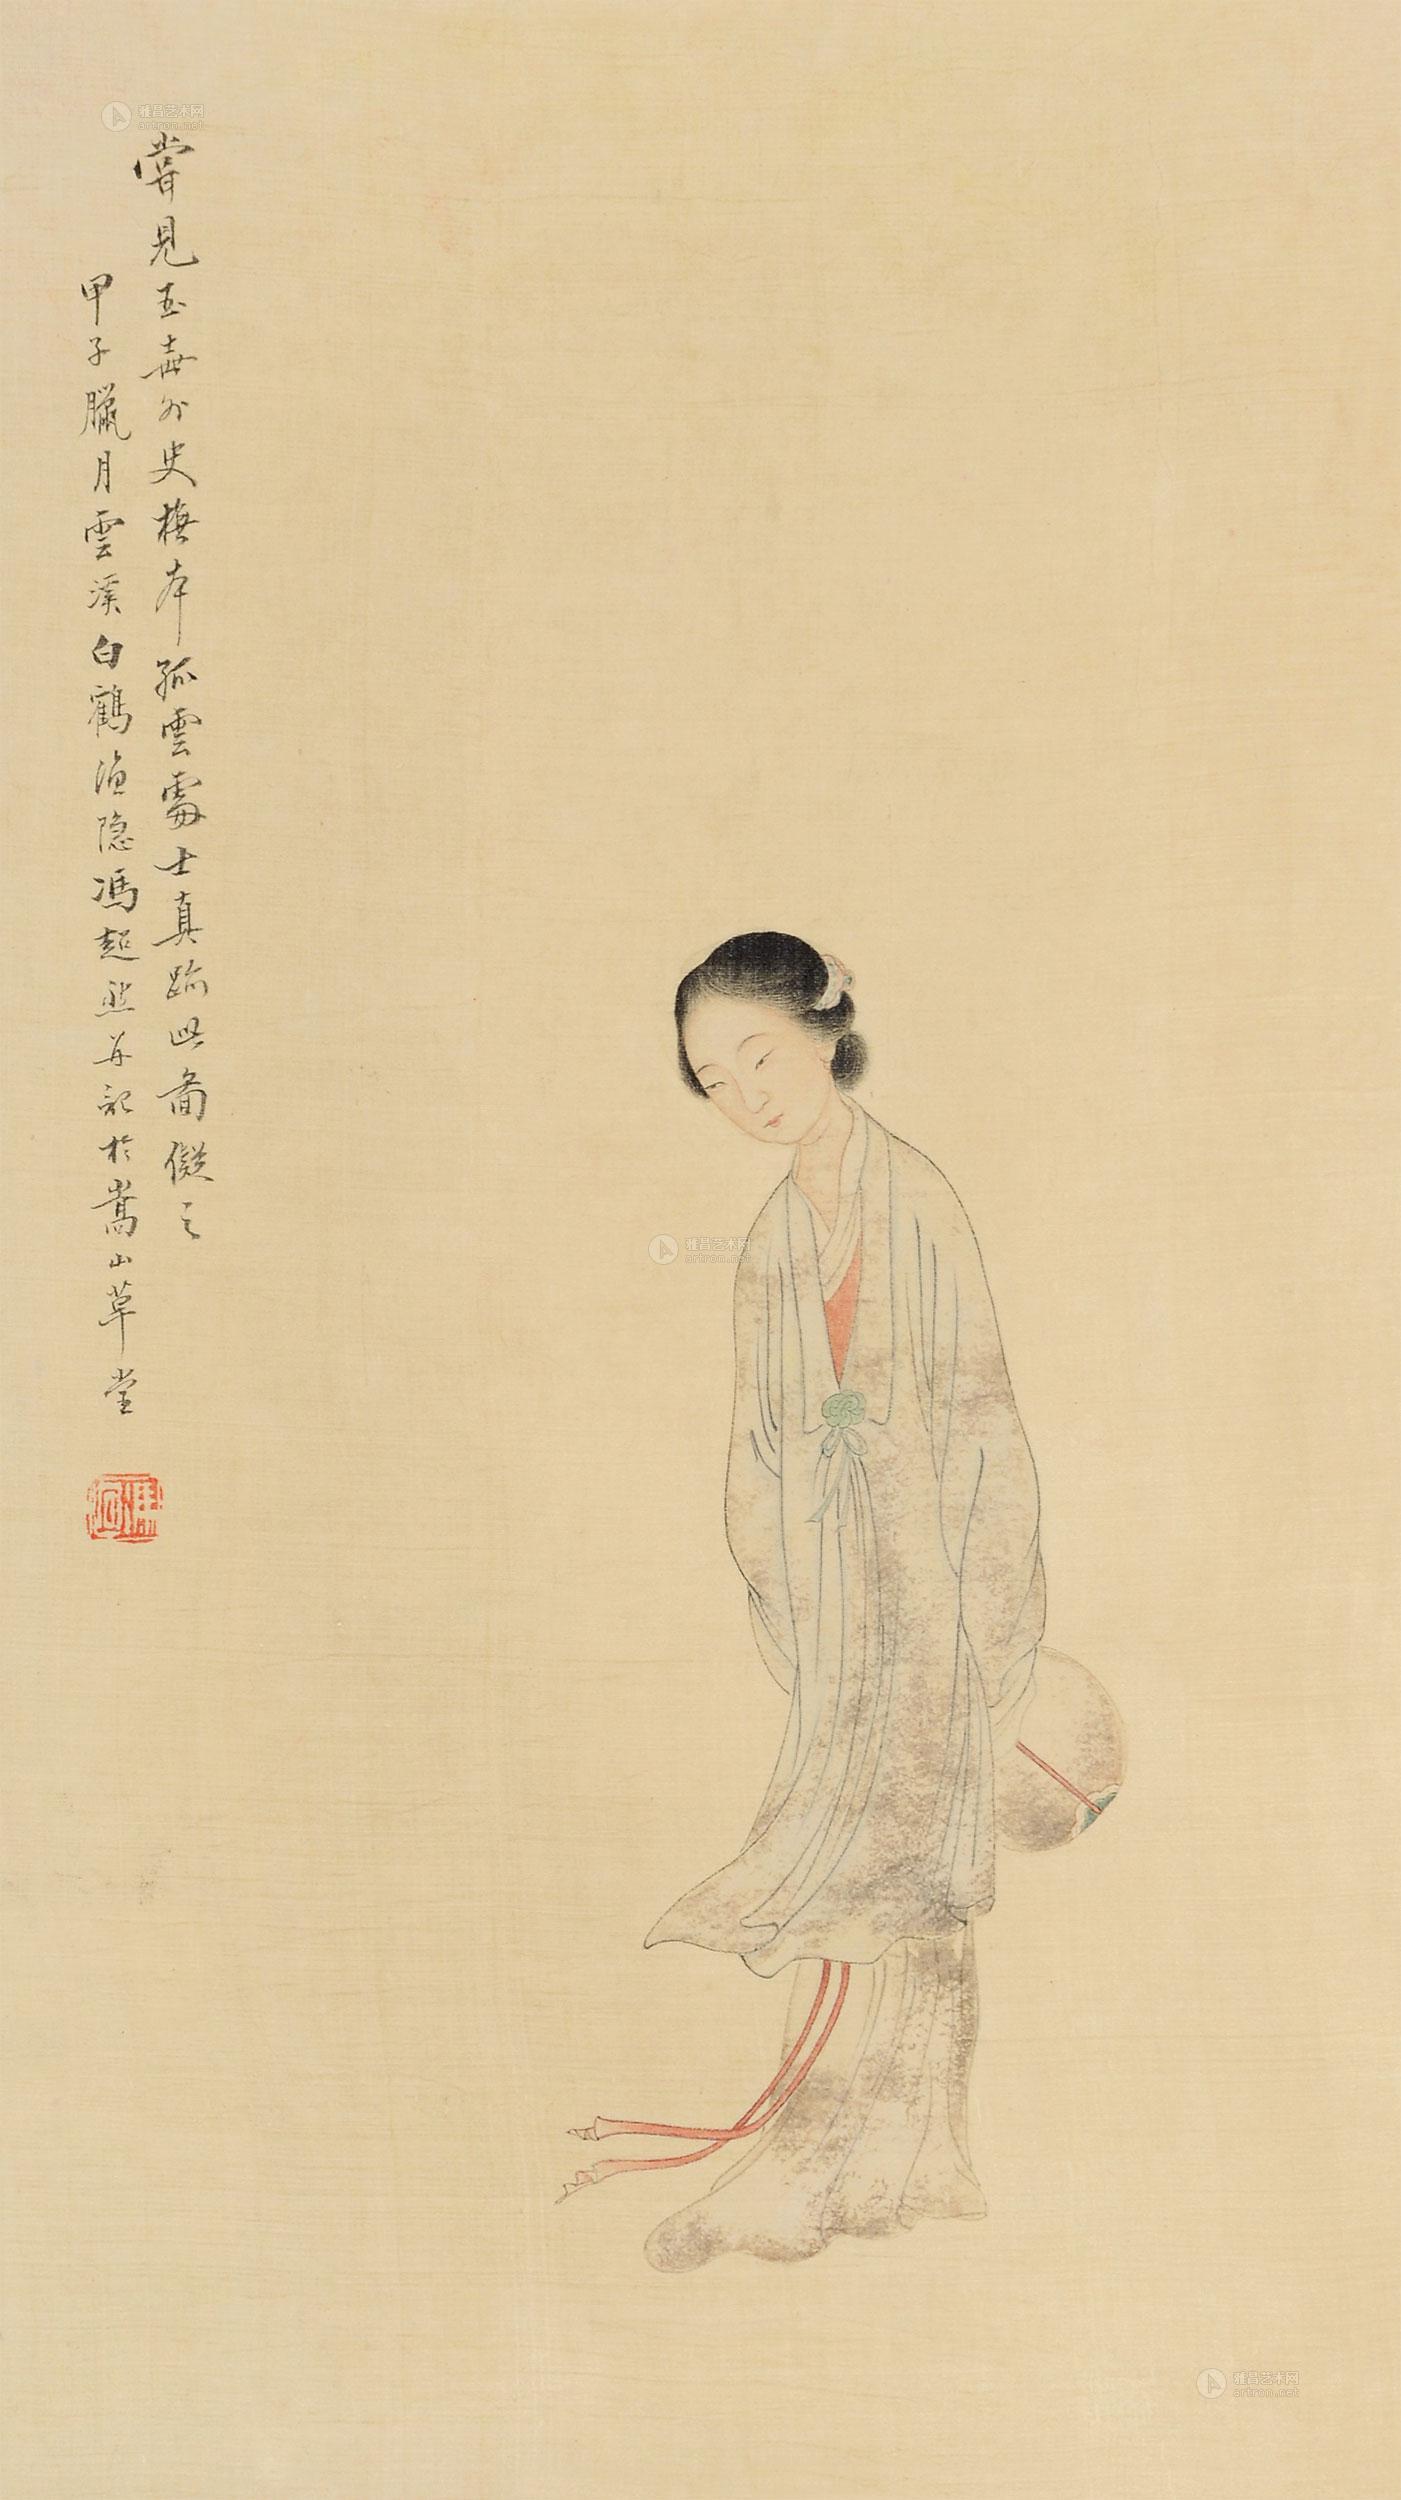 嘗見玉壺外史橅本孤雲處士真跡此圖儗之
甲子臘月雲溪白鶴漁隱馮超然并記於嵩山草堂
雅昌艺术网
artron.net
雅昌艺术网
artron.net
雅昌艺术网
artron.net